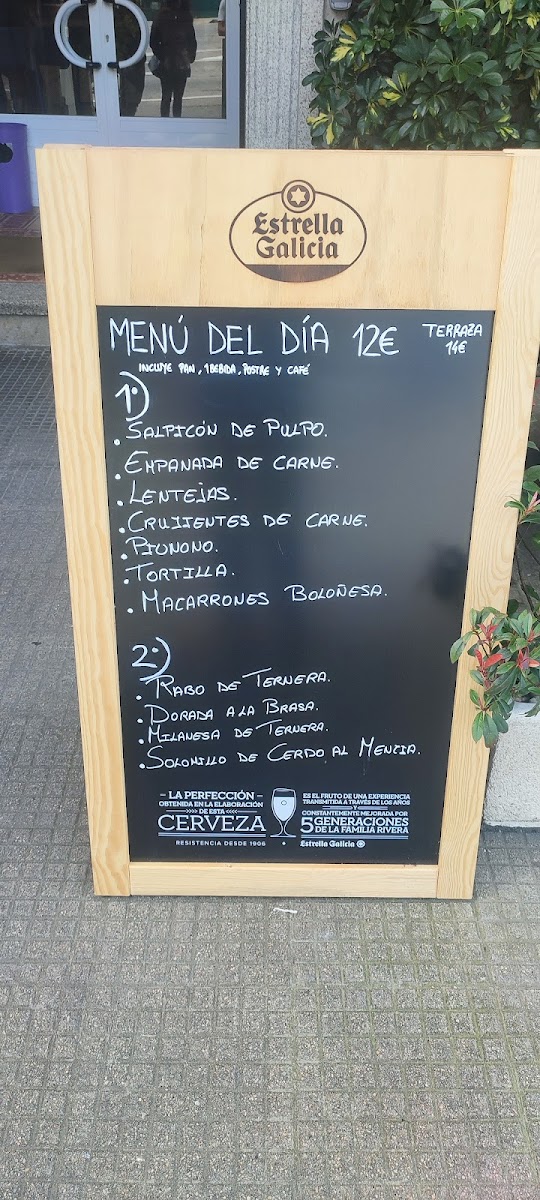 Estrella
Galicia
MENÚ DEL DÍA 12€
TERRAZA
14€
INCLUYE PAN, 1 BEBIDA, POSTRE Y CAFÉ
1º)
. SALPICÓN DE PULPO.
. EMPANADA DE CARNE.
. LENTEJAS.
. CRUJIENTES DE CARNE.
. PIONONO.
. TORTILLA.
. MACARRONES BOLOÑESA.
2º)
. RABO DE TERNERA.
. DORADA A LA BRASA.
. MILANESA DE TERNERA.
. SOLOMILLO DE CERDO AL MENCIA.
– LA PERFECCIÓN –
OBTENIDA EN LA ELABORACIÓN
DE ESTA
CERVEZA
RESISTENCIA DESDE 1906
ES EL FRUTO DE UNA EXPERIENCIA
TRANSMITIDA A TRAVÉS DE LOS AÑOS
Y
CONSTANTEMENTE MEJORADA POR
5 GENERACIONES
DE LA FAMILIA RIVERA
Estrella Galicia